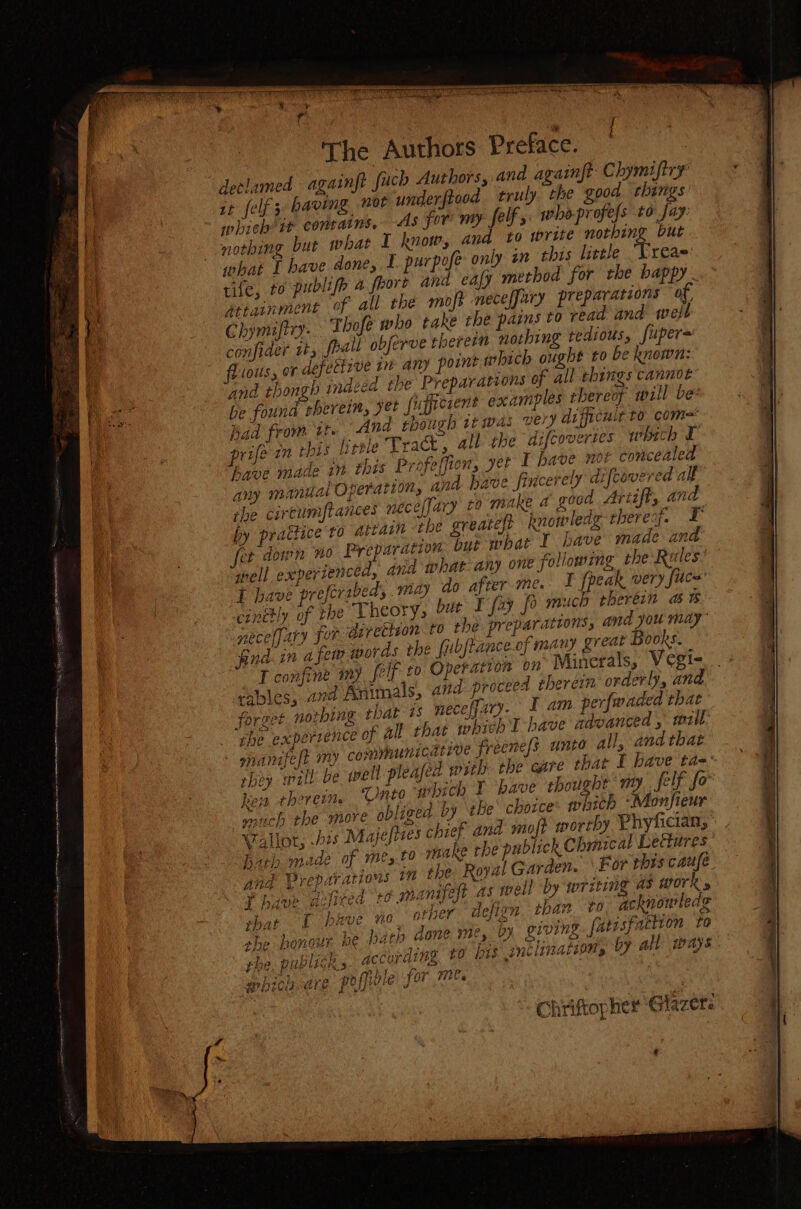 The Authors Preface.
declamed againſt ſuch Authors, and againſt Chymiſtry
it ſelf; having not underſtood truly the good things
which it contains. As for my ſelf, who profeſs to ſay
nothing but what I know, and to write nothing but
what I have done, I purpoſe only in this little Trea-
tiſe, to publiſh a ſhort and eaſy method for the happy
attainment of all the moſt neceſſary preparations of
Chymiſtry. Thoſe who take the pains to read and well
conſider it, ſhall obſerve therein nothing tedious, ſuper-
fluous, or defective in any point which ought to be known:
and though indeed the Preparations of all things cannot
be found therein, yet ſufficient examples thereof will be
had from it. And though it was very difficult to com-
priſe in this little Tract, all the diſcoveries which I
have made in this Profeſſion, yet I have not concealed
any manual Operation, and have ſincerely diſcovered all
the circumſtances neceſſary to make a good Artiſt, and
by practice to attain the greateſt knowledg thereof. I
ſet down no Preparation but what I have made and
well experienced, and what any one following the Rules
I have preſcribed, may do after me. I ſpeak very ſuc-
cinctly of the Theory, but I ſay ſo much therein as is
neceſſary for direction to the preparations, and you may
find in a few words the ſubſtance of many great Books.
I confine my ſelf to Operation on Minerals, Vegi-
tables, and Animals, and proceed therein orderly, and
forget nothing that is neceſſary. I am perſwaded that
the experience of all that which I have advanced, will
manifeſt my communicative freeneſs unto all, and that
they will be well pleaſed with the care that I have ta-
ken therein. Unto which I have thought my ſelf ſo
much the more obliged by the choice which Monſieur
Vallot, his Majeſties chief and moſt worthy Phyſician,
hath made of me, to make the publick Chmical Lectures
and Preparations in the Royal Garden. For this cauſe
I have deſired to manifeſt as well by writing as work,
that I have no other deſign than to acknowledg
the honour he hath done me, by giving ſatisfaction to
the publick, according to his inclination, by all ways
which are poſſible for me.
Chriſtopher Glazer.